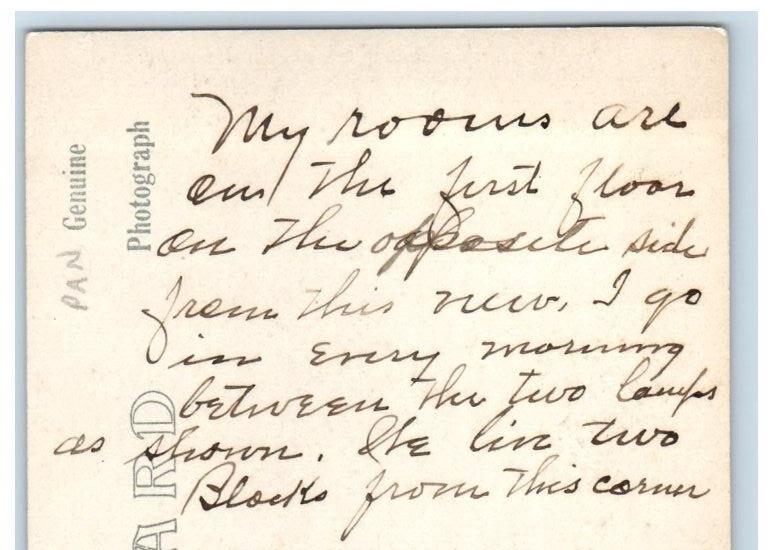 My rooms are
on the first floor
on the opposite side
from this view. I go
in every morning
between the two lamps
as shown. We live two
Blocks from this corner
Genuine
Photograph
PAN
ARD